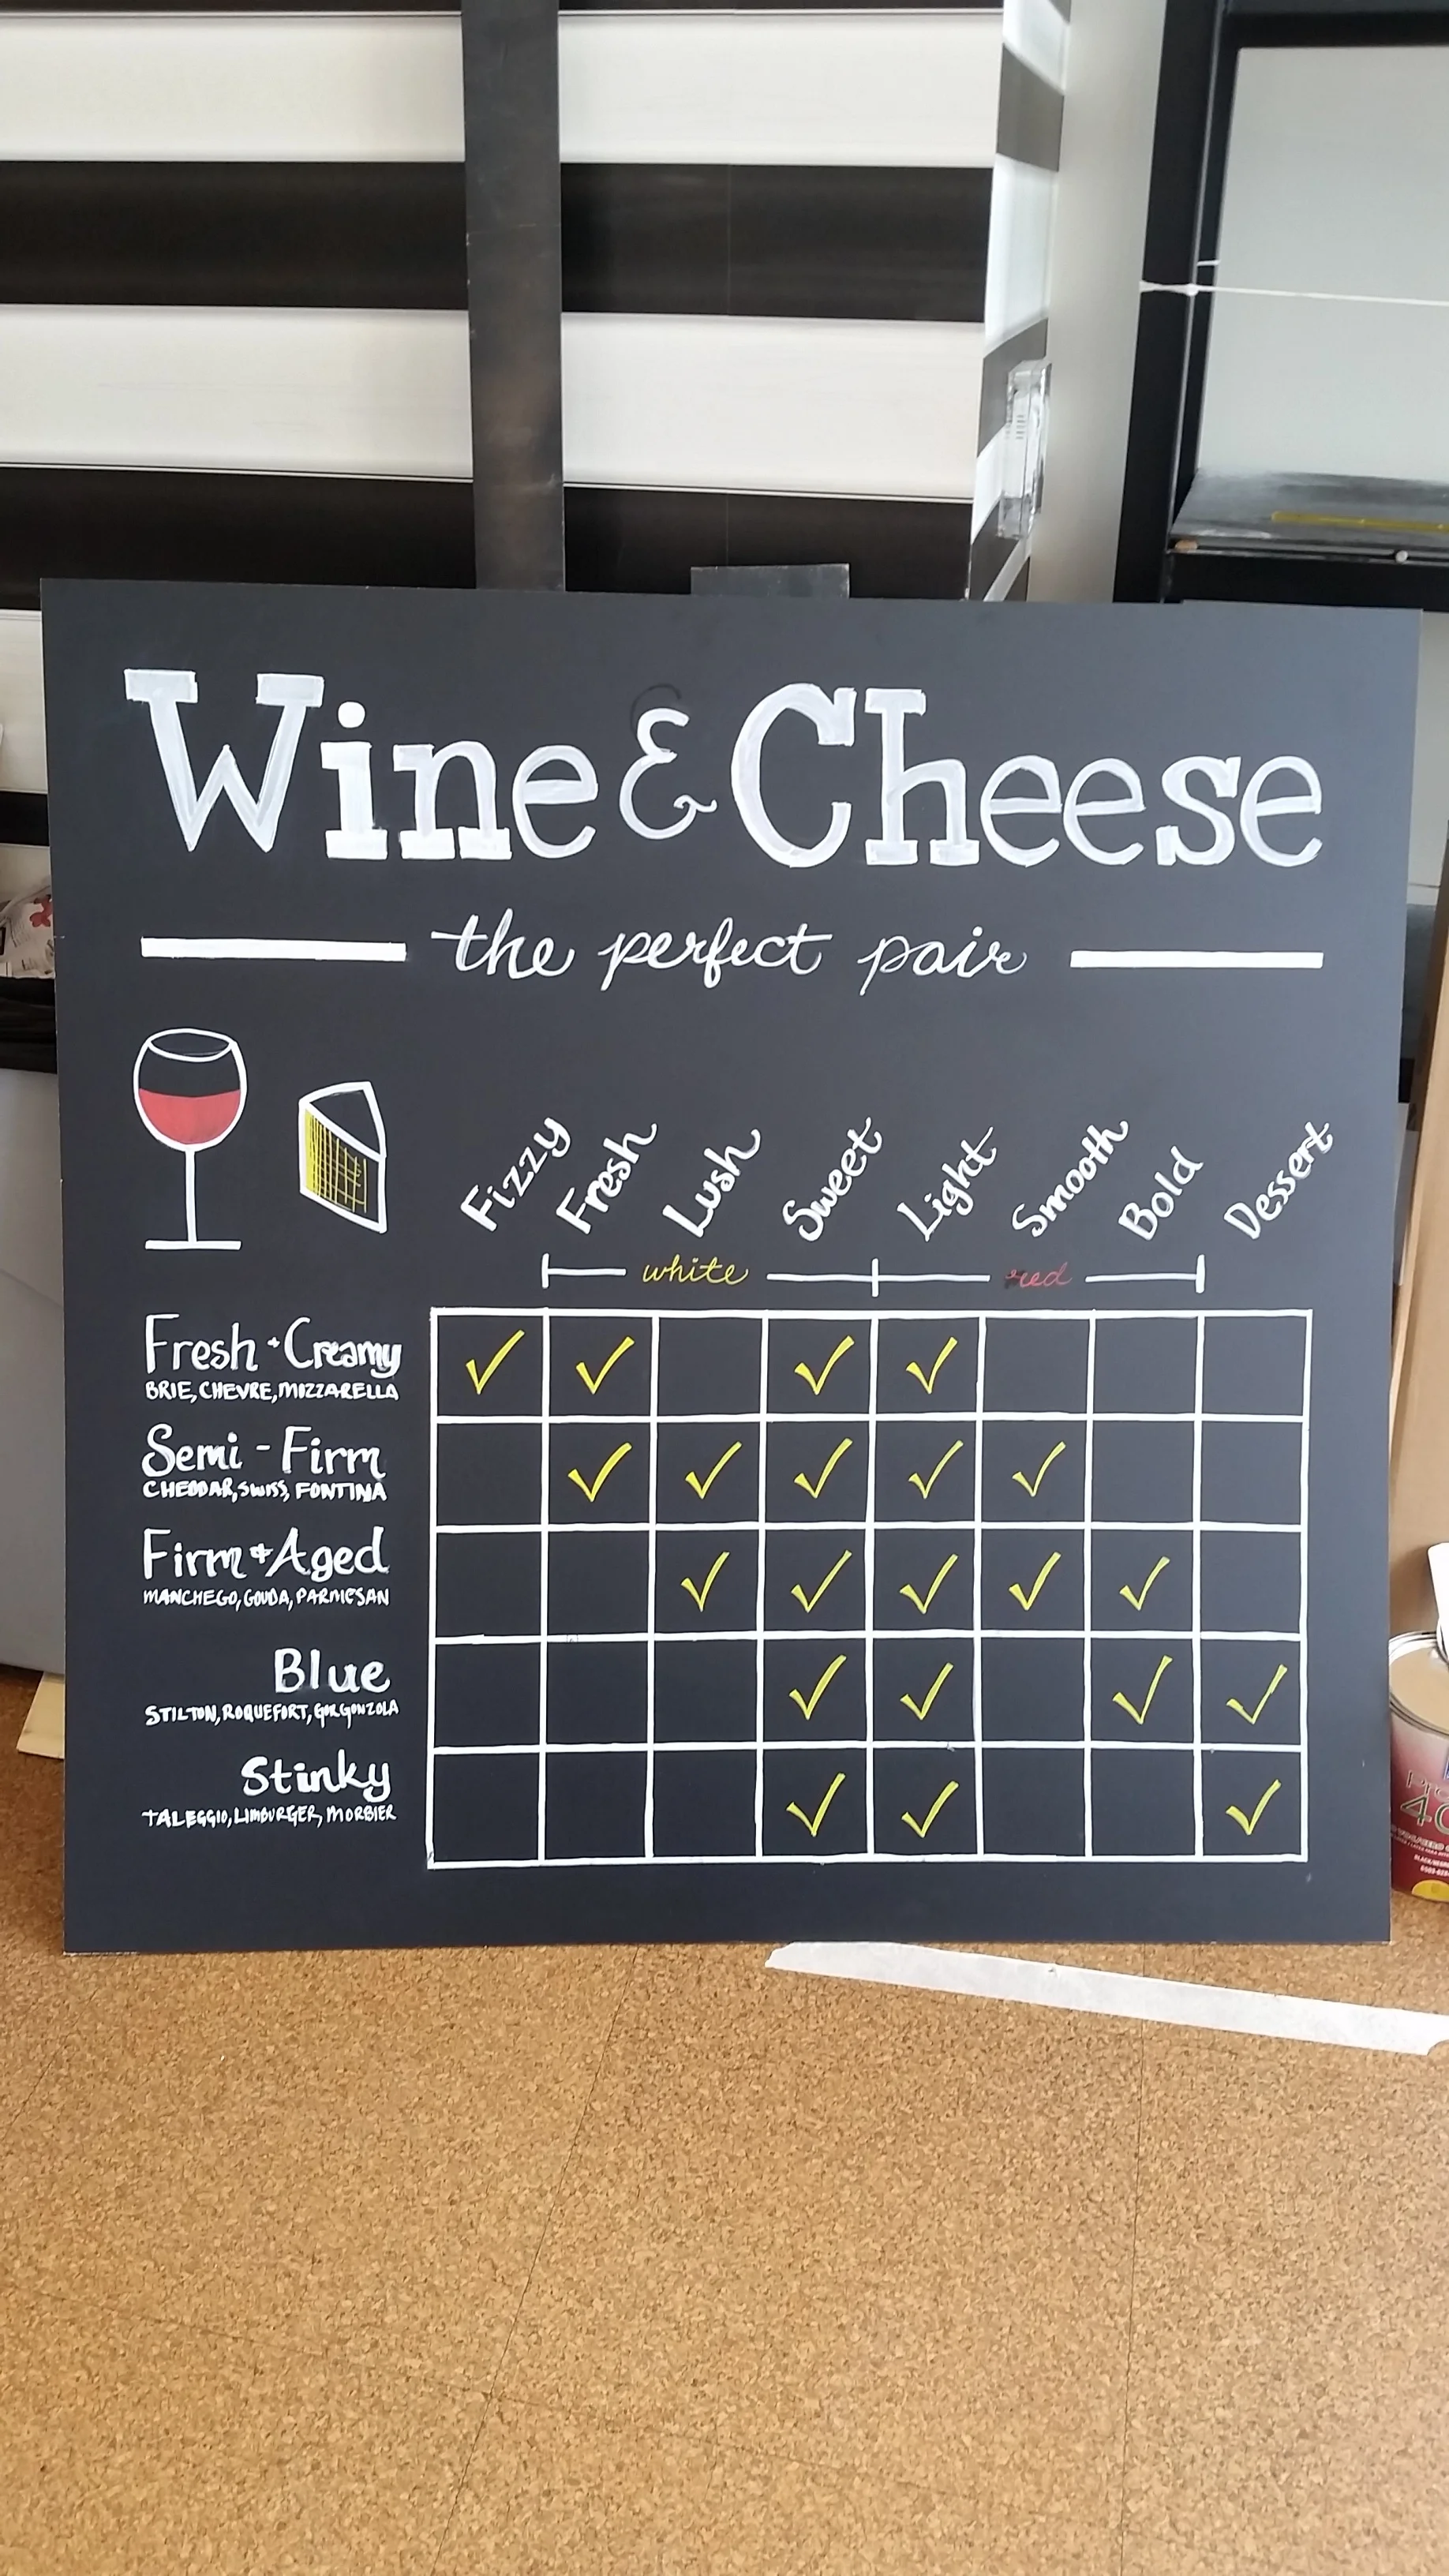 Wine & Cheese
the perfect pair
Fizzy Fresh Lush Sweet Light Smooth Bold Dessert
white red
Fresh + Creamy
BRIE, CHEVRE, MIZZARELLA
Semi - Firm
CHEDDAR, SWISS, FONTINA
Firm + Aged
MANCHEGO, GOUDA, PARMESAN
Blue
STILTON, ROQUEFORT, GORGONZOLA
Stinky
TALEGGIO, LIMBURGER, MORBIER